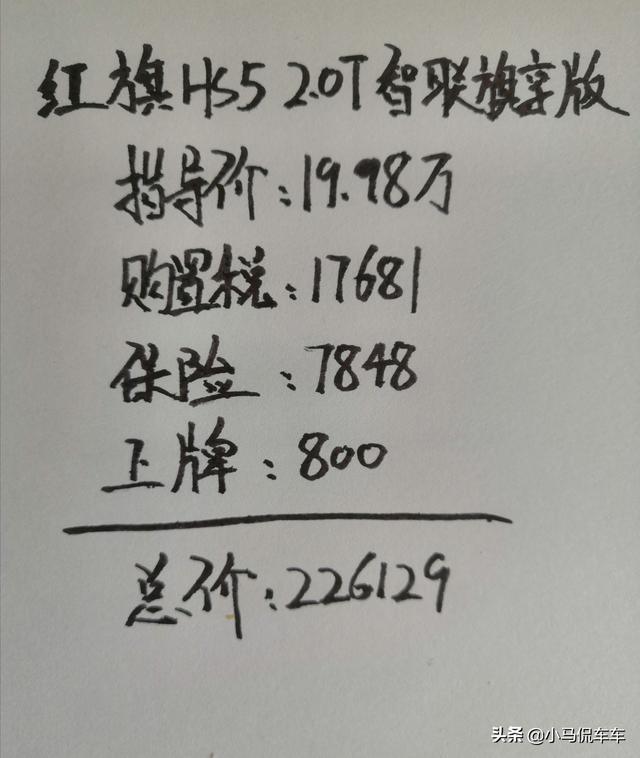 红旗HS5 2.0T智联旗享版
指导价:19.98万
购置税:17681
保险:7848
上牌:800
总价:226129
头条 @小马侃车车